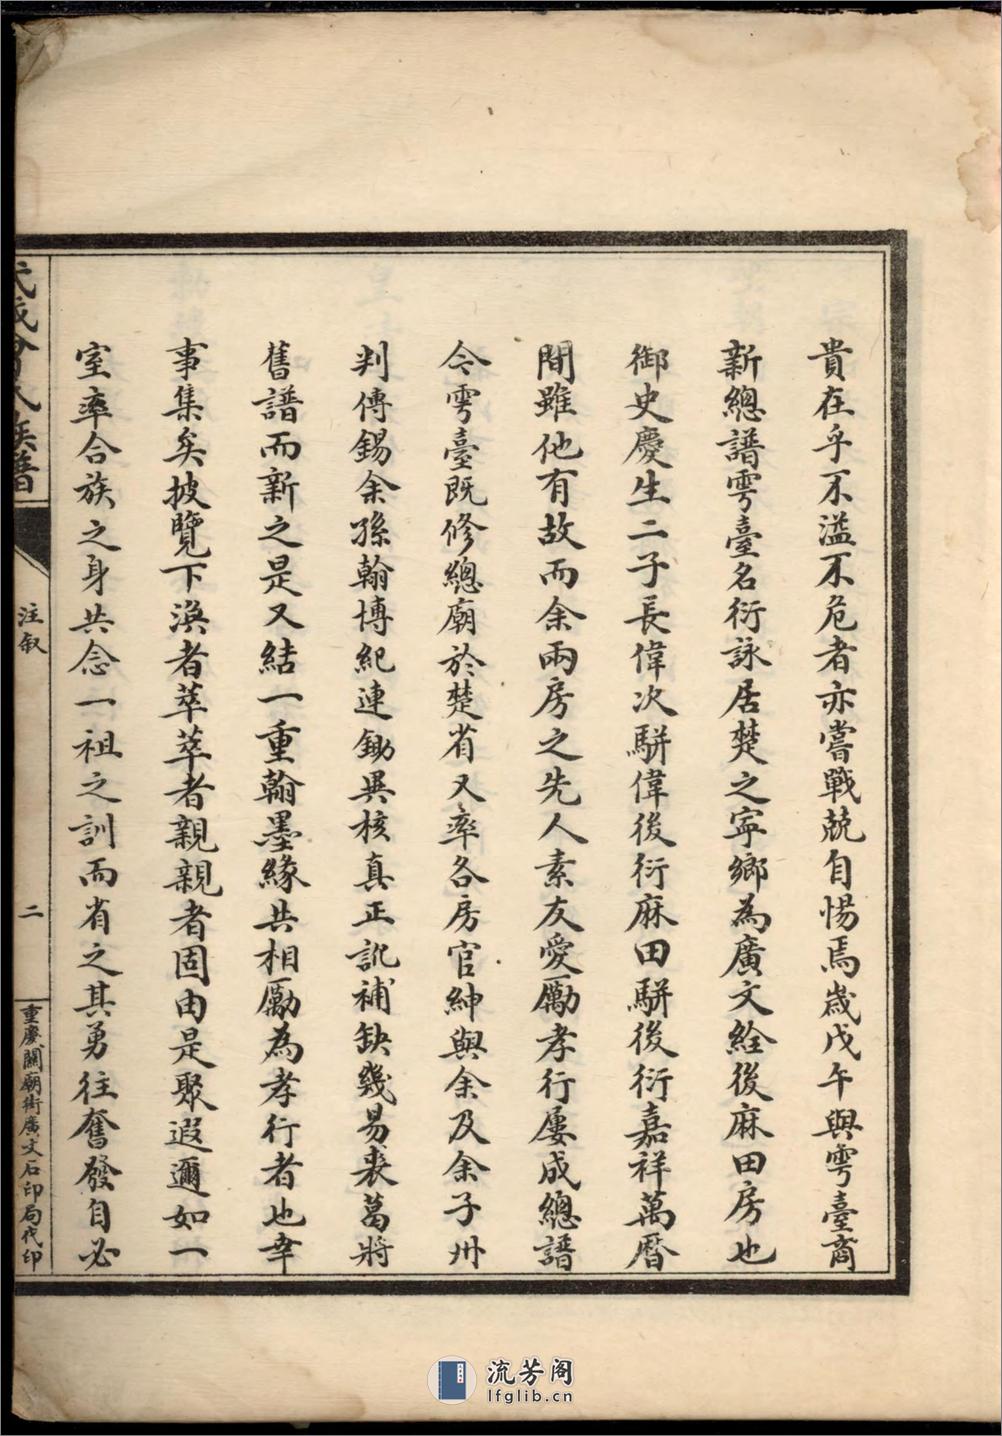 貴在乎不溢不危者亦嘗戰兢自惕焉歲戊午與雩臺商
新總譜雩臺名衍詠居楚之寧鄉為廣文絟後麻田房也
御史慶生二子長偉次駢偉後衍麻田駢後衍嘉祥萬曆
間雖他有故而余兩房之先人素友愛勵孝行屢成總譜
今雩臺既修總廟於楚省又率各房官紳與余及余子州
判傳錫余孫翰博紀連鋤異核真正訛補缺幾易裘葛將
舊譜而新之是又結一重翰墨緣共相勵為孝行者也幸
事集矣披覽下渙者萃萃者親親者固由是聚遐邇如一
室率合族之身共念一祖之訓而省之其勇往奮發自必
氏族譜
注叙
二
重慶關廟街廣文石印局代印
流芳阁
lfglib.cn